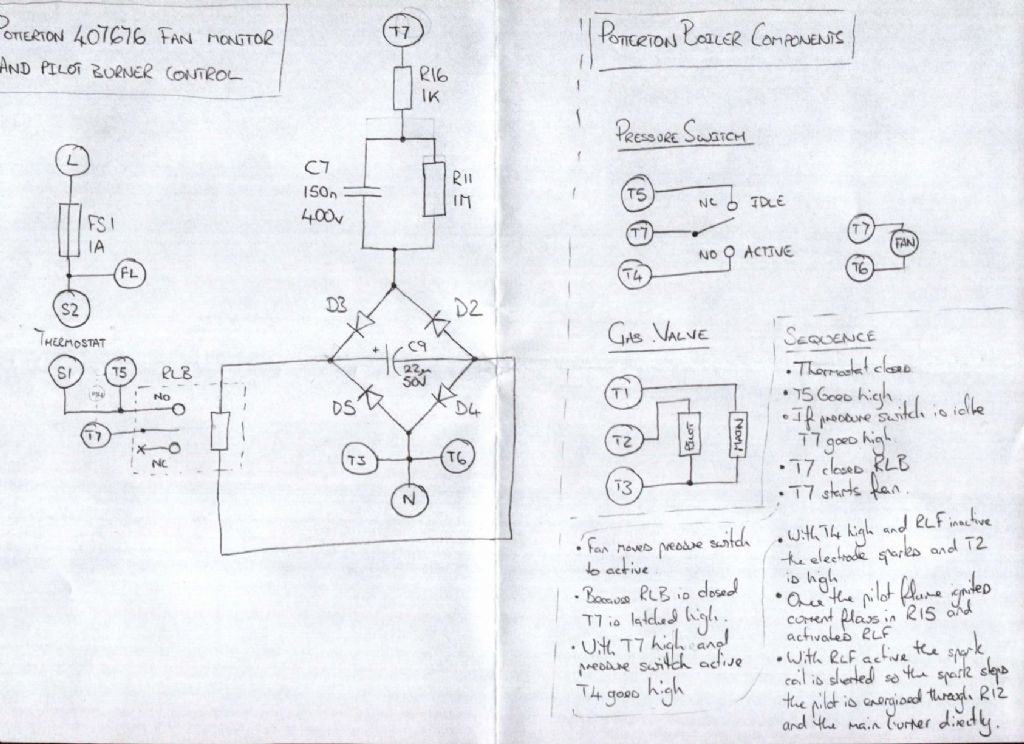 POTTERTON 407676 FAN MONITOR
AND PILOT BURNER CONTROL
T7
R16
1K
C7
150n
400v
R11
1M
L
FS1
1A
FL
S2
D3
D2
+
C9
22m
50V
D5
D4
T3
T6
N
THERMOSTAT
S1
T5
RLB
NO
T7
X
NC
POTTERTON BOILER COMPONENTS
PRESSURE SWITCH
T5
NC
IDLE
T7
NO
ACTIVE
T4
T7
FAN
T6
GAS VALVE
T1
T2
PILOT
MAIN
T3
• Fan moves pressure switch
to active
• Because RLB is closed
T7 is latched high.
• With T7 high and
pressure switch active
T4 goes high
SEQUENCE
• Thermostat closes
• T5 Goes high
• If pressure switch is idle
T7 goes high
• T7 closes RLB
• T7 starts fan.
• With T4 high and RLF inactive
the electrode sparks and T2
is high
• Once the pilot flame ignites
current flows in R15 and
activates RLF
• With RLF active the spark
coil is shorted so the spark stops
the pilot is energised through R12
and the main burner directly.